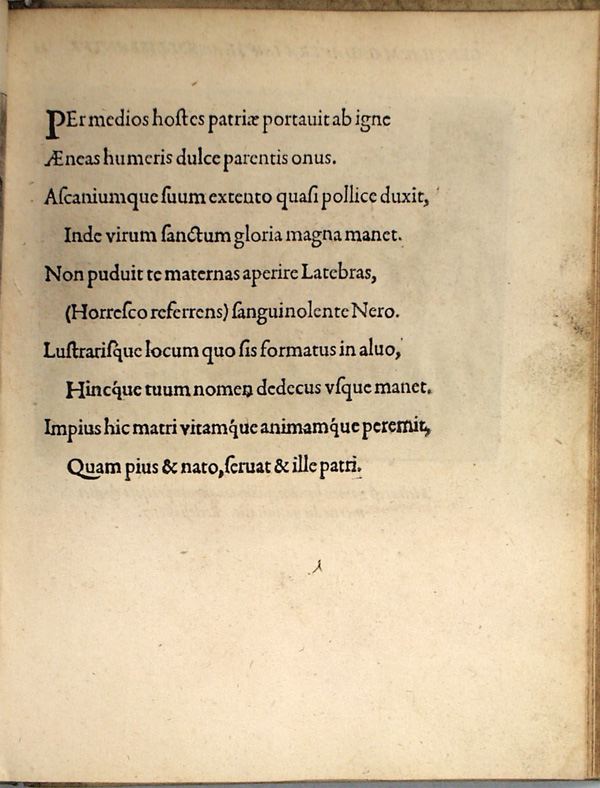 PEr medios hoſtes patriæ portauit ab igne
Æneas humeris dulce parentis onus.
Aſcaniumque ſuum extento quaſi pollice duxit,
Inde virum ſanctum gloria magna manet.
Non puduit te maternas aperire Latebras,
(Horreſco referrens) ſanguinolente Nero.
Luſtrariſque locum quo ſis formatus in aluo,
Hincq́ue tuum nomen dedecus vſque manet.
Impius hic matri vitamq́ue animamq́ue peremit,
Quam pius & nato, ſeruat & ille patri.